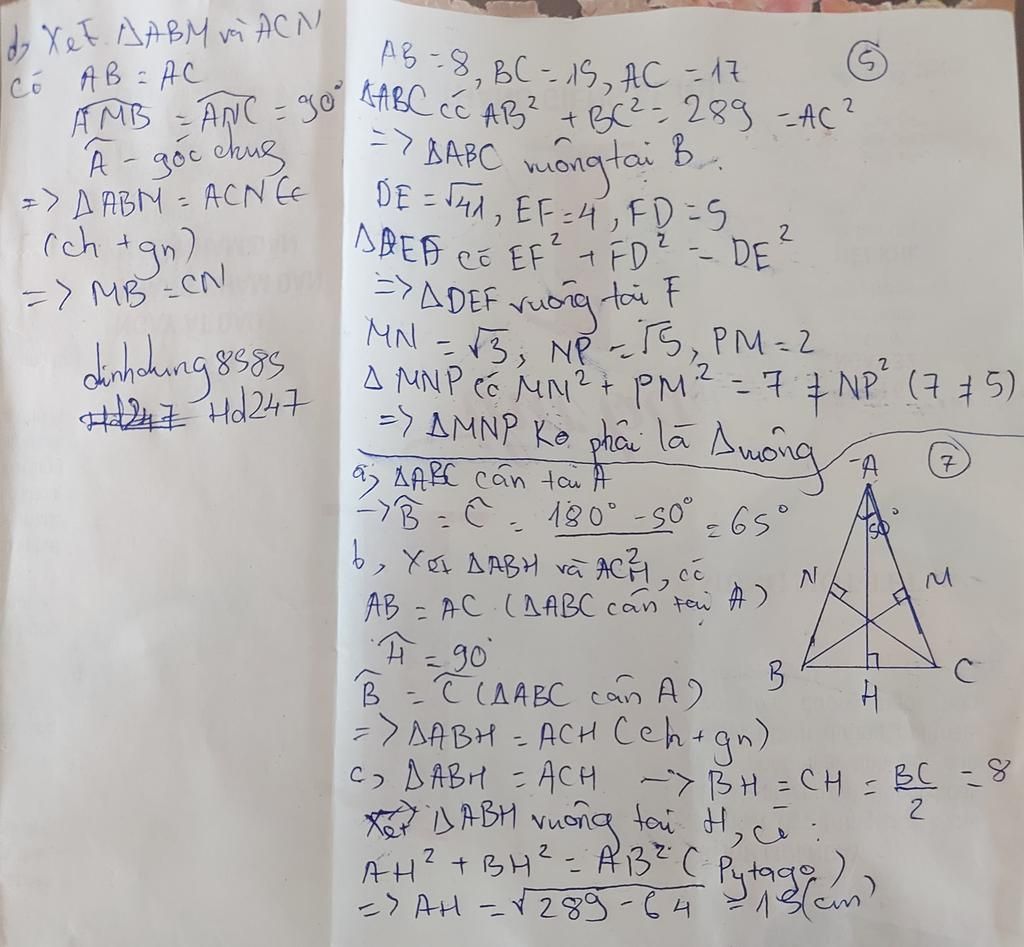 d, Xét ΔABM và ACN
có AB = AC
AMB = ANC = 90°
Â - góc chung
=> ΔABM = ACN
(ch + gn)
=> MB = CN
dinhdung8585
Hd247
5
AB = 8, BC = 15, AC = 17
ΔABC có AB² + BC² = 289 = AC²
=> ΔABC vuông tại B.
DE = √41, EF = 4, FD = 5
ΔDEF có EF² + FD² = DE²
=> ΔDEF vuông tại F
MN = √3, NP = √5, PM = 2
Δ MNP có MN² + PM² = 7 ≠ NP² (7 ≠ 5)
=> ΔMNP ko phải là Δvuông
7
a, ΔABC cân tại A
-> B̂ = Ĉ = 180° - 50° = 65°
2
b, Xét ΔABH và ACH, có
AB = AC (ΔABC cân tại A)
Ĥ = 90°
B̂ = Ĉ (ΔABC cân A)
=> ΔABH = ACH (ch + gn)
c, ΔABH = ACH -> BH = CH = BC/2 = 8
Xét ΔABH vuông tại H, có:
AH² + BH² = AB² (Pytago)
=> AH = √289 - 64 = 15(cm)
A
50°
N
M
B
C
H